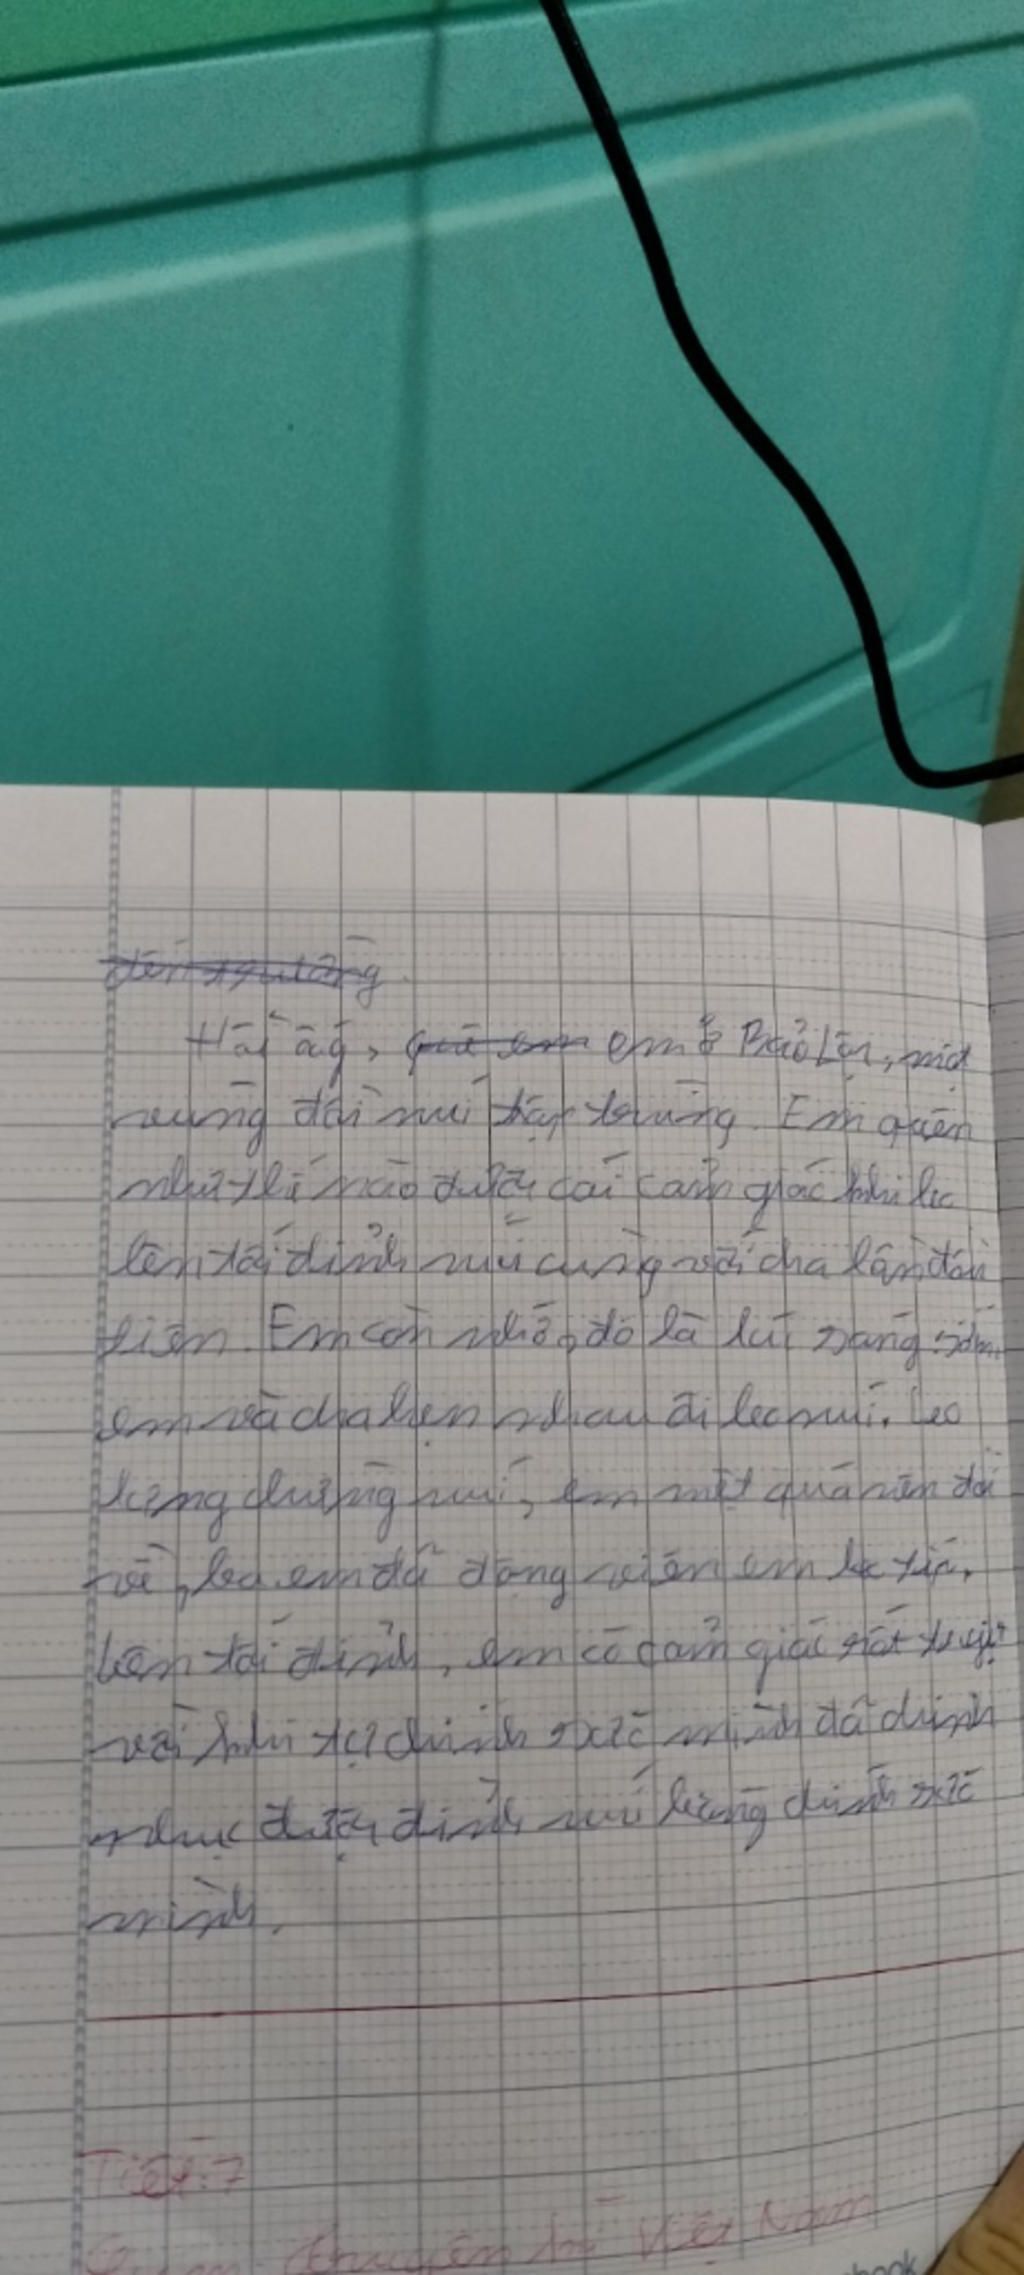 Hồi ấy, em ở Bảo Lộc, một
vùng đồi núi tập trung. Em quên
như thế nào được cái cảm giác khi leo
lên tới đỉnh núi cùng với cha lần đầu
tiên. Em còn nhớ, đó là lúc sáng sớm,
em và cha hẹn nhau đi leo núi. Leo
từng chừng núi, em mệt quá nên đòi
về, ba em đã động viên em leo tiếp.
Lên tới đỉnh, em có cảm giác rất tuyệt
vời khi tự chính sức mình đã chinh
phục được đỉnh núi bằng chính sức
mình.
Tiết: 7
Việt Nam